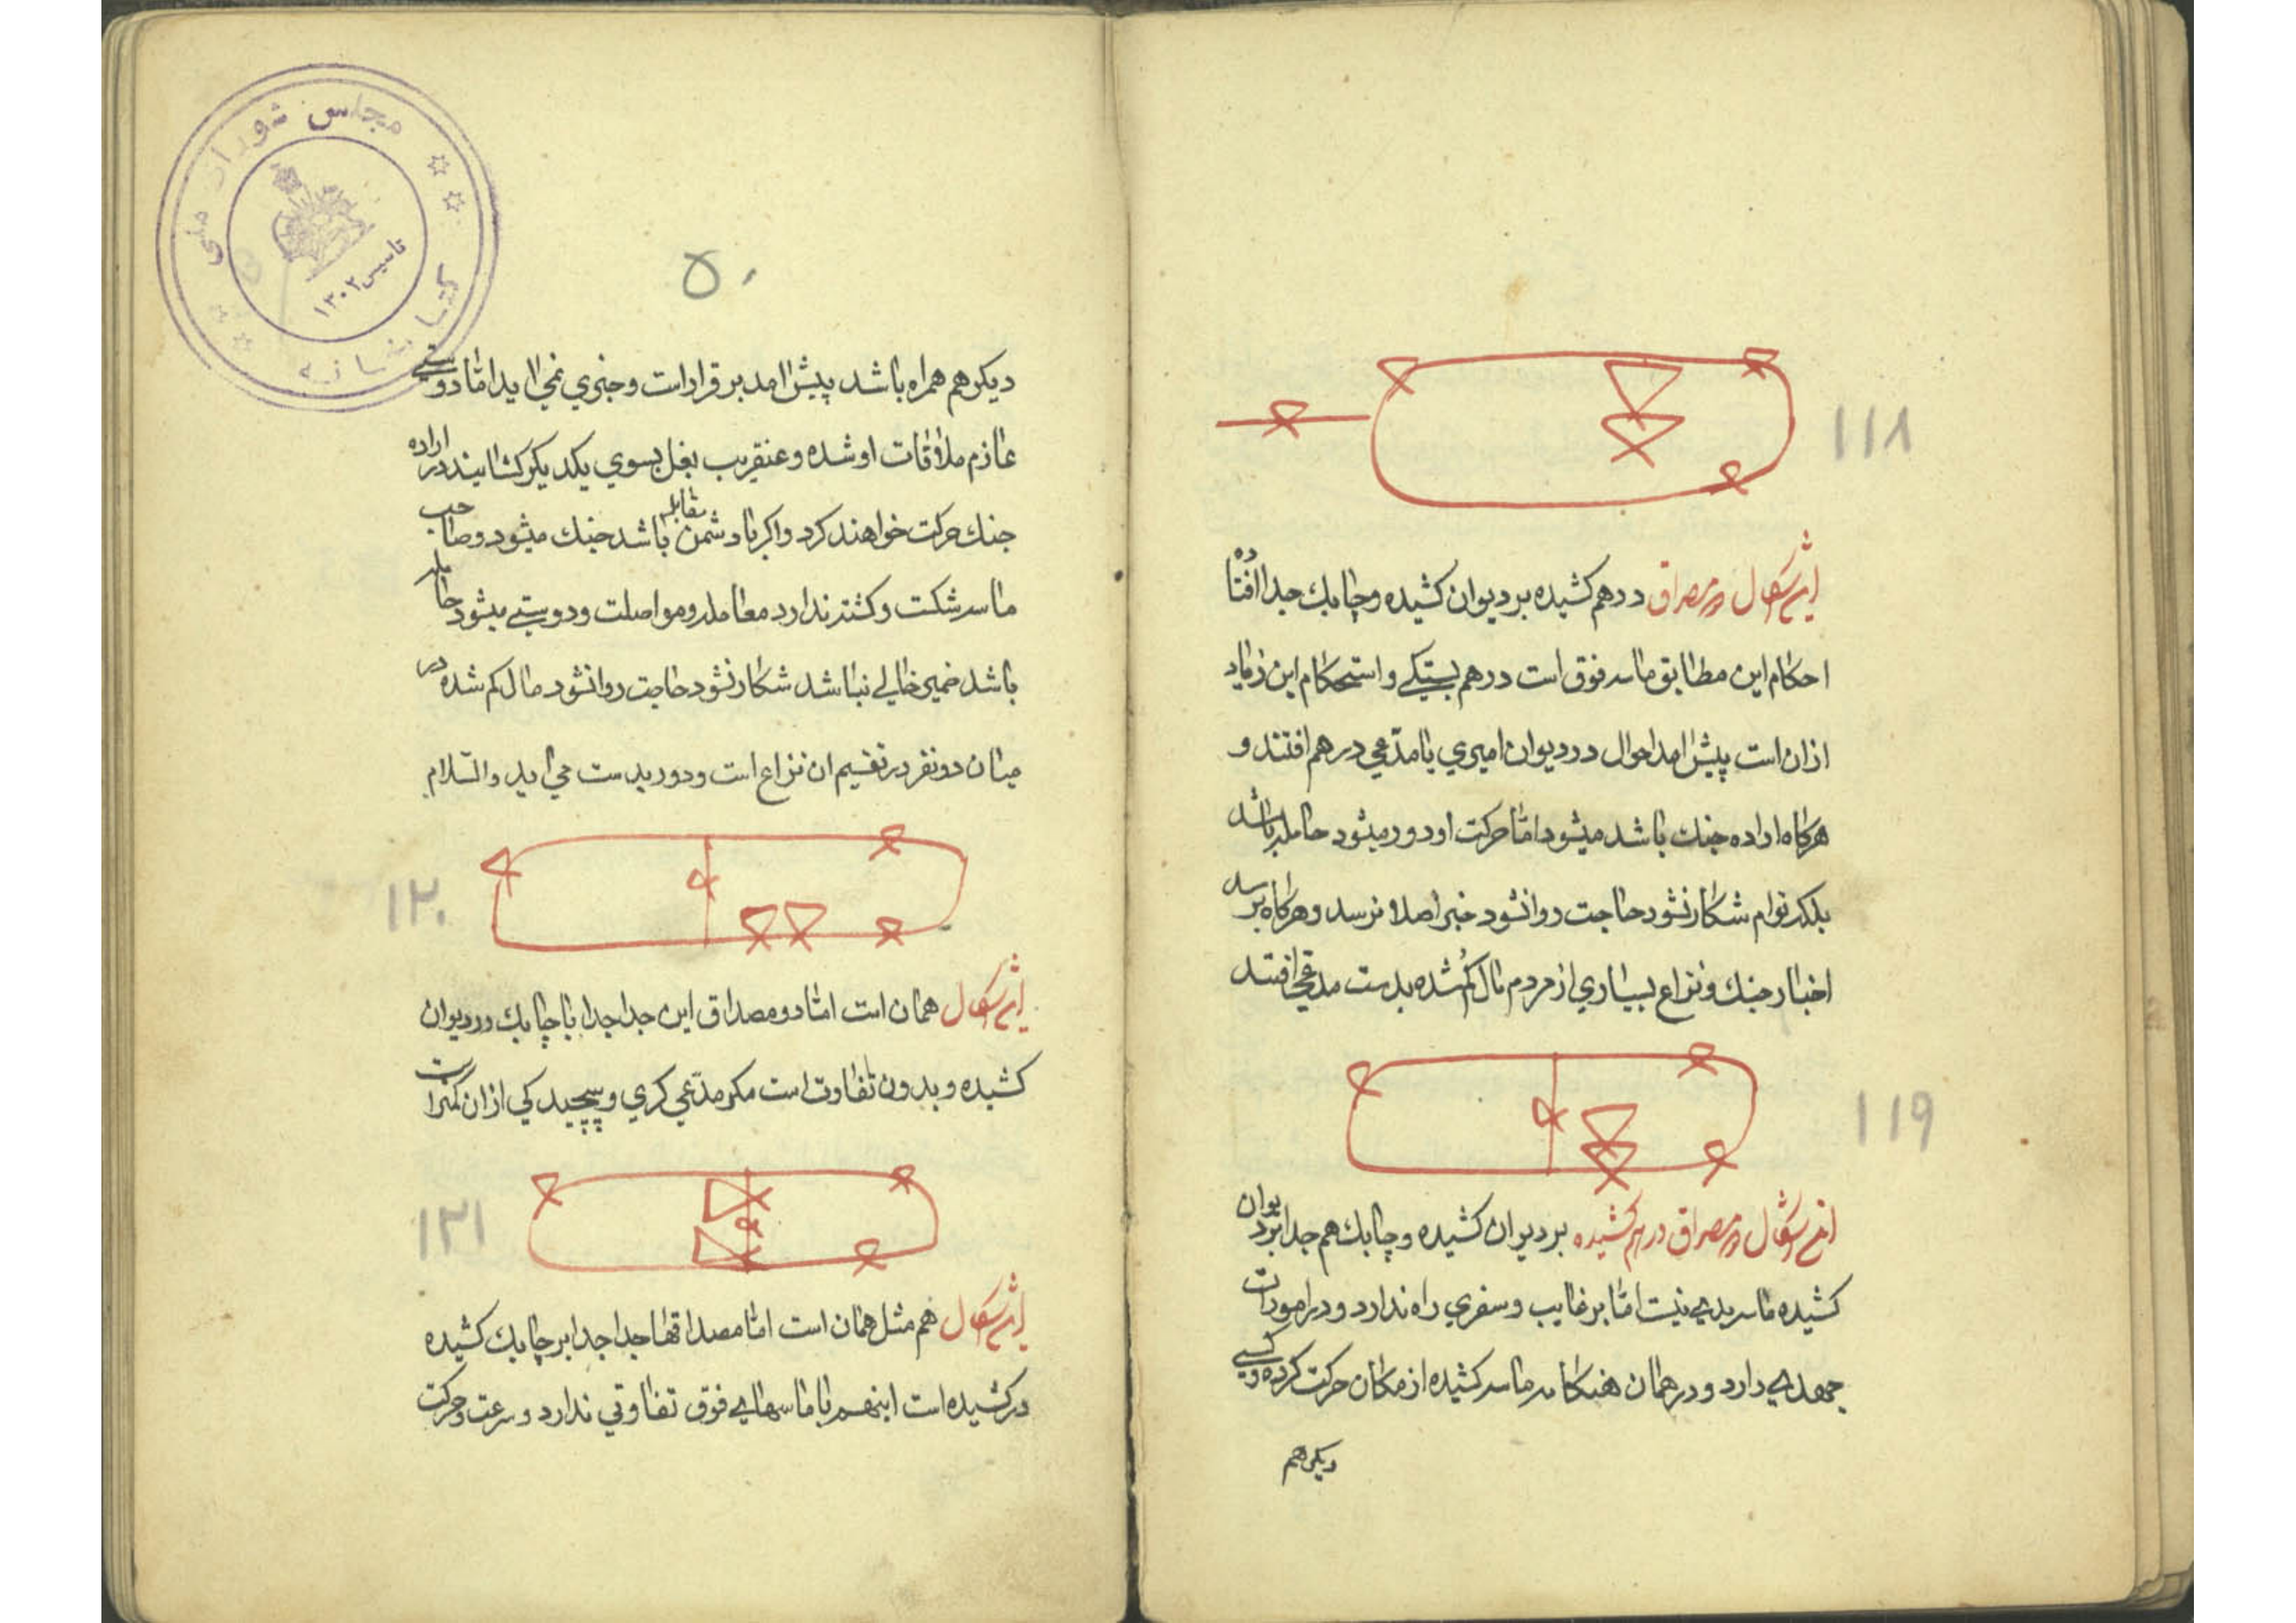 ۱۱۸
این شکال دو مصراق درهم کشیده بر دیوان کشیده و چابك جدا افتاده
احکام این مطابق ماسه فوق است درهم بستیکے و استحکام این زیاد
ازان است پیش امد احوال در دیوان امیري یا مدّعي درهم افتند و
هرکاه اراده جنك باشد میشود امّا حرکت او دور میشود حامله باشد
بلکه توام شکار نشود حاجت روا نشود خبر اصلا نرسد و هرکاه برسد
اخبار جنك و نزاع بسیاري از مردم مال کم شده بدست مدعي افتد
۱۱۹
این شکال دو مصراق درهم کشیده بر دیوان کشیده و چابك هم جدا بر دیوان
کشیده ماسه بدے نیست امّا بر غایب و سفري راه ندارد و در امورات
جهدے دارد و در همان هنکامه ماسه کشیده از مکان حرکت کرده و کسے
دیکر هم
۵۰
دیکر هم همراه باشد پیش امد برقرار است و خبري نمي اید امّا دوستے
عازم ملاقات او شده و عنقریب بغل بسوي یکدیکر کشایند در اراده
جنك حرکت خواهند کرد و اکر با دشمن مقابله باشد جنك میشود و صاحب
ماسه شکست و کشته ندارد معامله و مواصلت و دوستے میشود حامله
باشد ضمیر خالے نباشد شکار نشود حاجت روا نشود مال کم شده در
میان دو نفر در تقسیم ان نزاع است و دور بدست مي اید والسّلام
۱۲۰
این شکال همان است امّا دو مصداق این جدا جدا با چابك در دیوان
کشیده و بدون تفاوت است مکر مدّعي کري و پیچیدکي ازان کمتر است
۱۲۱
این شکال هم مثل همان است امّا مصداقها جدا جدا بر چابك کشیده
در کشیده است اینهم با ماسهاے فوق تفاوتي ندارد و سرعت و حرکت
کتابخانه مجلس شورای ملی
تاسیس ۱۳۰۲